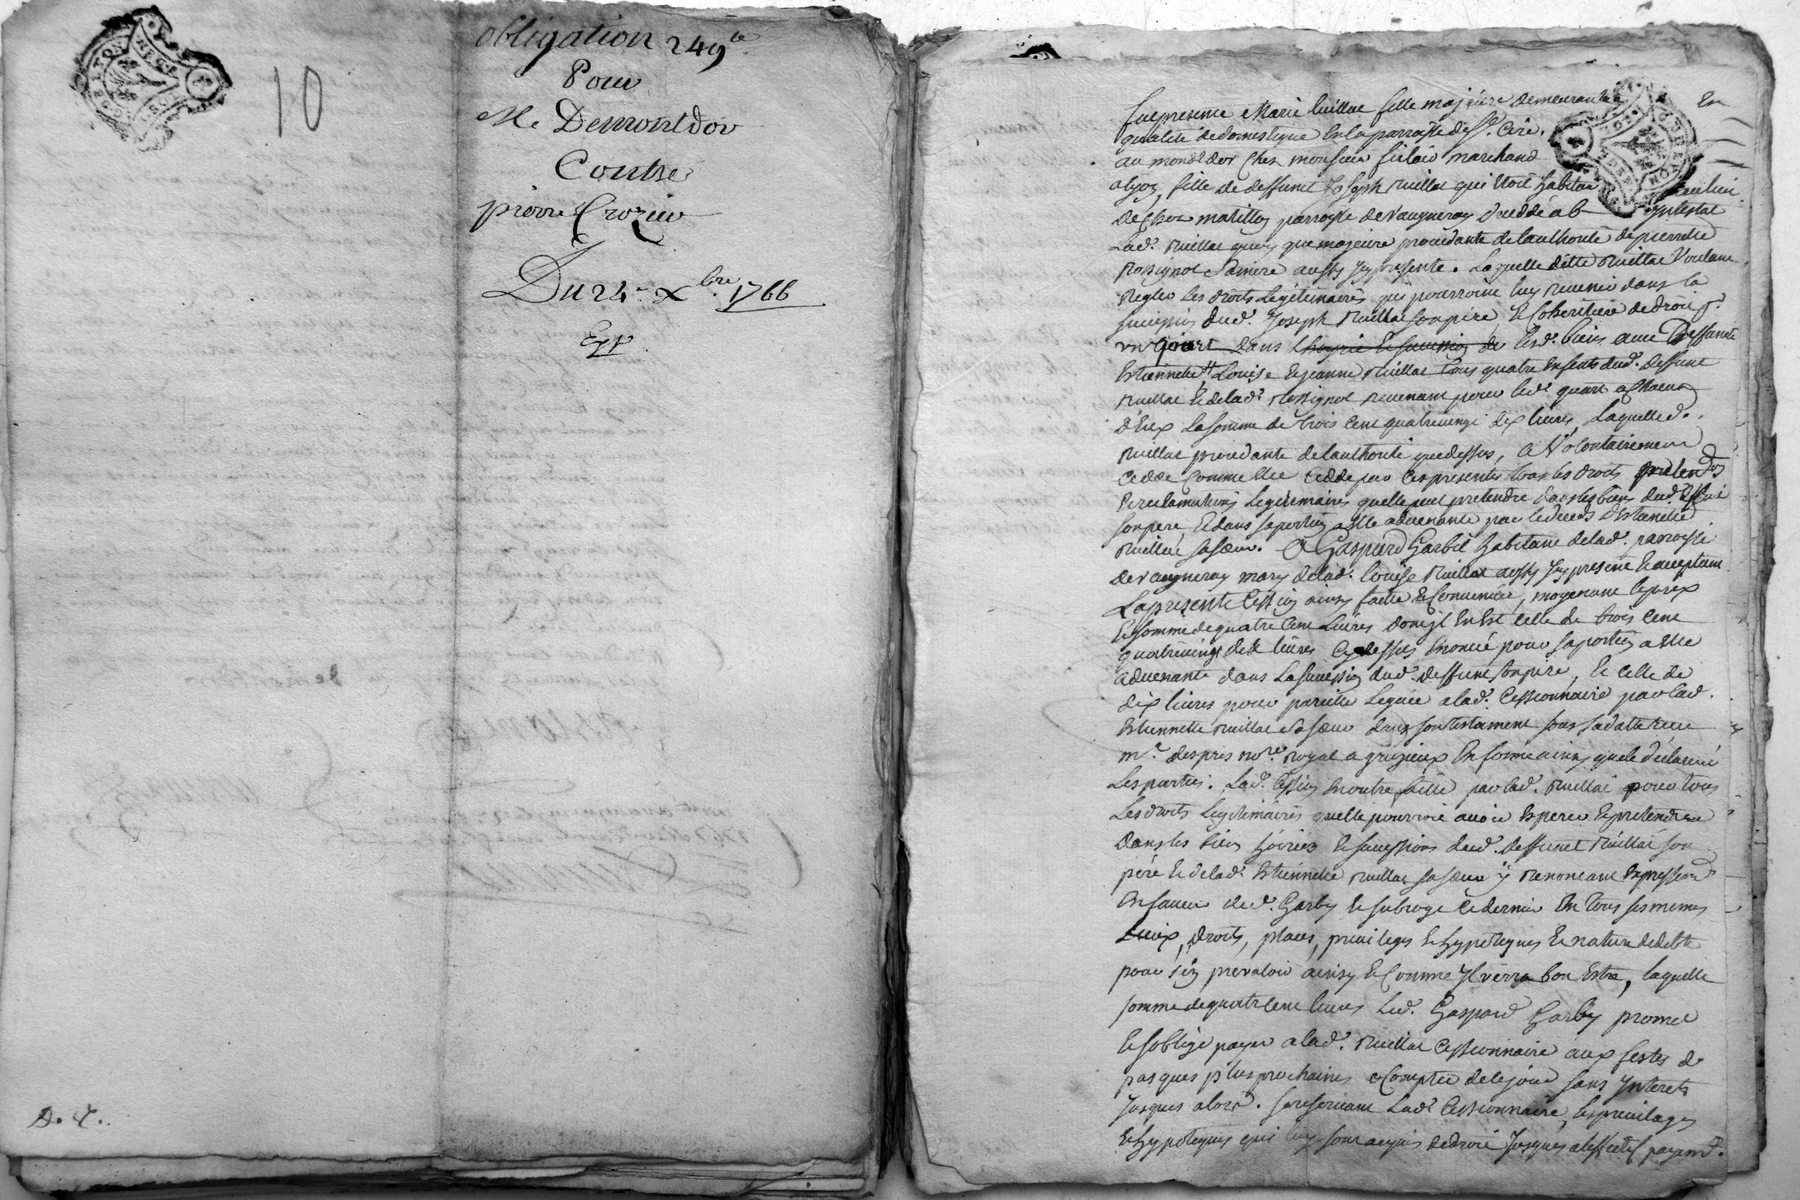 10
obligation 249
Pour
Me Demontdor
Contre
pierre Crozier
Du 24e xbre 1766
D. 7.
Fut presente Marie Nuillat fille majeure demeurante En
qualité de domestique En la parroisse de St. Cire
au mondt dor Ches monsieur filair marchand
a lyon, fille de deffunt Joseph nuillat qui Etoit habitan
de Chez matillon parroisse de Vaugneray dueddé ab intestat
Lad. nuillat quoy que majeure procedante de lauthorité de pierrette
Rossignol Sa mere aussy Icy presente. Laquelle ditte nuillat Voulant
Regler Les droits Legitimaires qui pourroint luy revenir dans la
succession dud. Joseph Nuillat son pere, Et Coheritiere de droit pr.
un quart dans lesd. biens avec Deffunte
Estiennette Louise Et jeanne nuillat tous quatre Enfants dud. deffunt
nuillat Et de lad. Rossignol revenant pour led. quart a Chacun
d'Eux La somme de trois Cent quatrevingt dix livres, Laquelle d.
nuillat procedante de lauthorité que dessus, a Volontairement
Cedde Comme Elle Cedde par Ces presentes tous les droits pretendus
Et reclamations Legitimaires quelle peut pretendre dans les biens dud.
son pere, Et dans sa portion a Elle advenante par le deceds d'Estiennette
nuillat sa sœur. a Gaspard Garbil habitant de lad. parroisse
de Vaugneray mary de lad. Louise Nuillat aussy Icy present Et acceptant
La presente Cession ainsy faitte Et Convenüe, moyenant le prix
Et somme de quatre Cent Livres dont Il En Est Celle de trois Cent
quatrevingt dix livres Cy dessus Enoncé pour sa portion a Elle
advenante dans La succession dud. deffunt son pere, Et Celle de
dix livres pour pareille Leguée a lad. Cessionnaire par lad.
Estiennette nuillat sa sœur dans son testament sous sa datte reçu
Mr. despres nore. royal a grezieux En forme ainsy que le déclarent
Les parties. Lad. Cession En outre faitte par lad. nuillat pour tous
Les droits Legitimaires quelle pourroit avoir Esperer Et pretendre
dans les biens hoiries Et successions dud. deffunct Nuillat son
pere Et de lad. Estiennette nuillat sa sœur y Renonçant Expressement
En faveur dud. Garby Et subroge Ce dernier En tous ses memes
Lieux, droits, places, privileges Et hypoteques Et nature de dette
pour s'En prevaloir ainsy Et Comme Il verra bon Estre, laquelle
somme de quatre Cent livres Led. Gaspard Garby promet
Et soblige payer a lad. nuillat Cessionnaire aux festes de
pasques plus prochaines a Compter de Ce jour sans Interets
Jusques alors. se reservant Lad. Cessionnaire, les privilages
Et hypoteques qui luy sont acquis de droit Jusques a leffectif payemt.